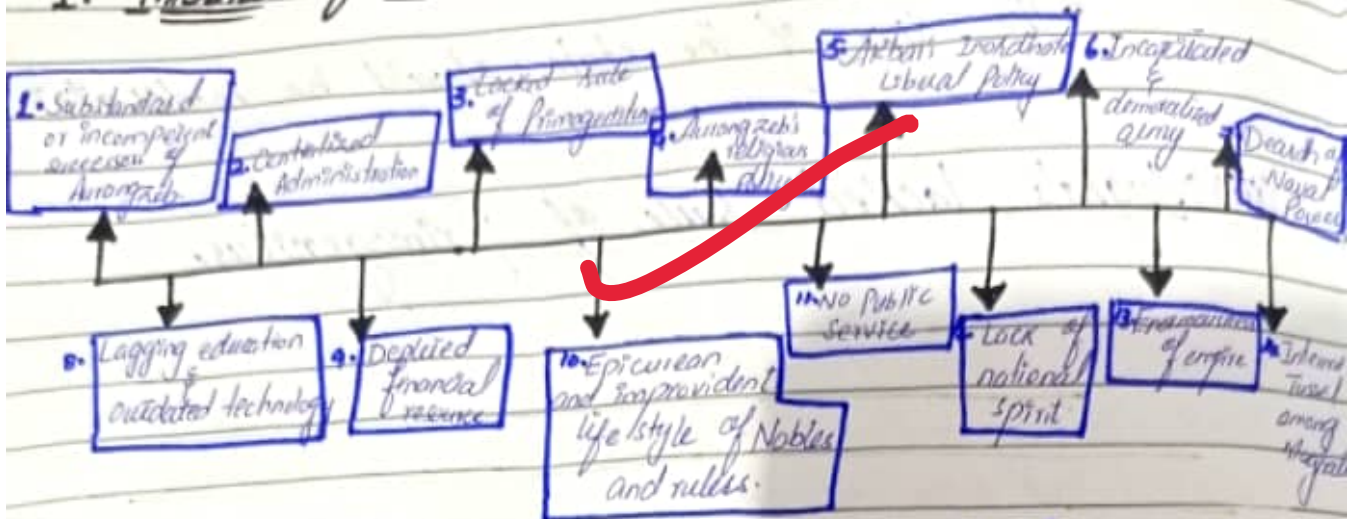 1. Substandard
or incompetent
successors of
Aurangzeb
2. Centerlized
Administration
3. Lacked rule
of Primogeniture
4. Aurangzeb's
religious
policy
5. Akbar's Inordinate
Libual Policy
6. Incapcitated
&
demoralized
army
7. Dearth of
Naval
Power
8. Lagging education
&
outdated technology
9. Depleted
financial
resource
10. Epicurean
and improvident
life style of Nobles
and rulers.
11. No Public
Service
Lack of
national
spirit
13.
of empire
Internal
among